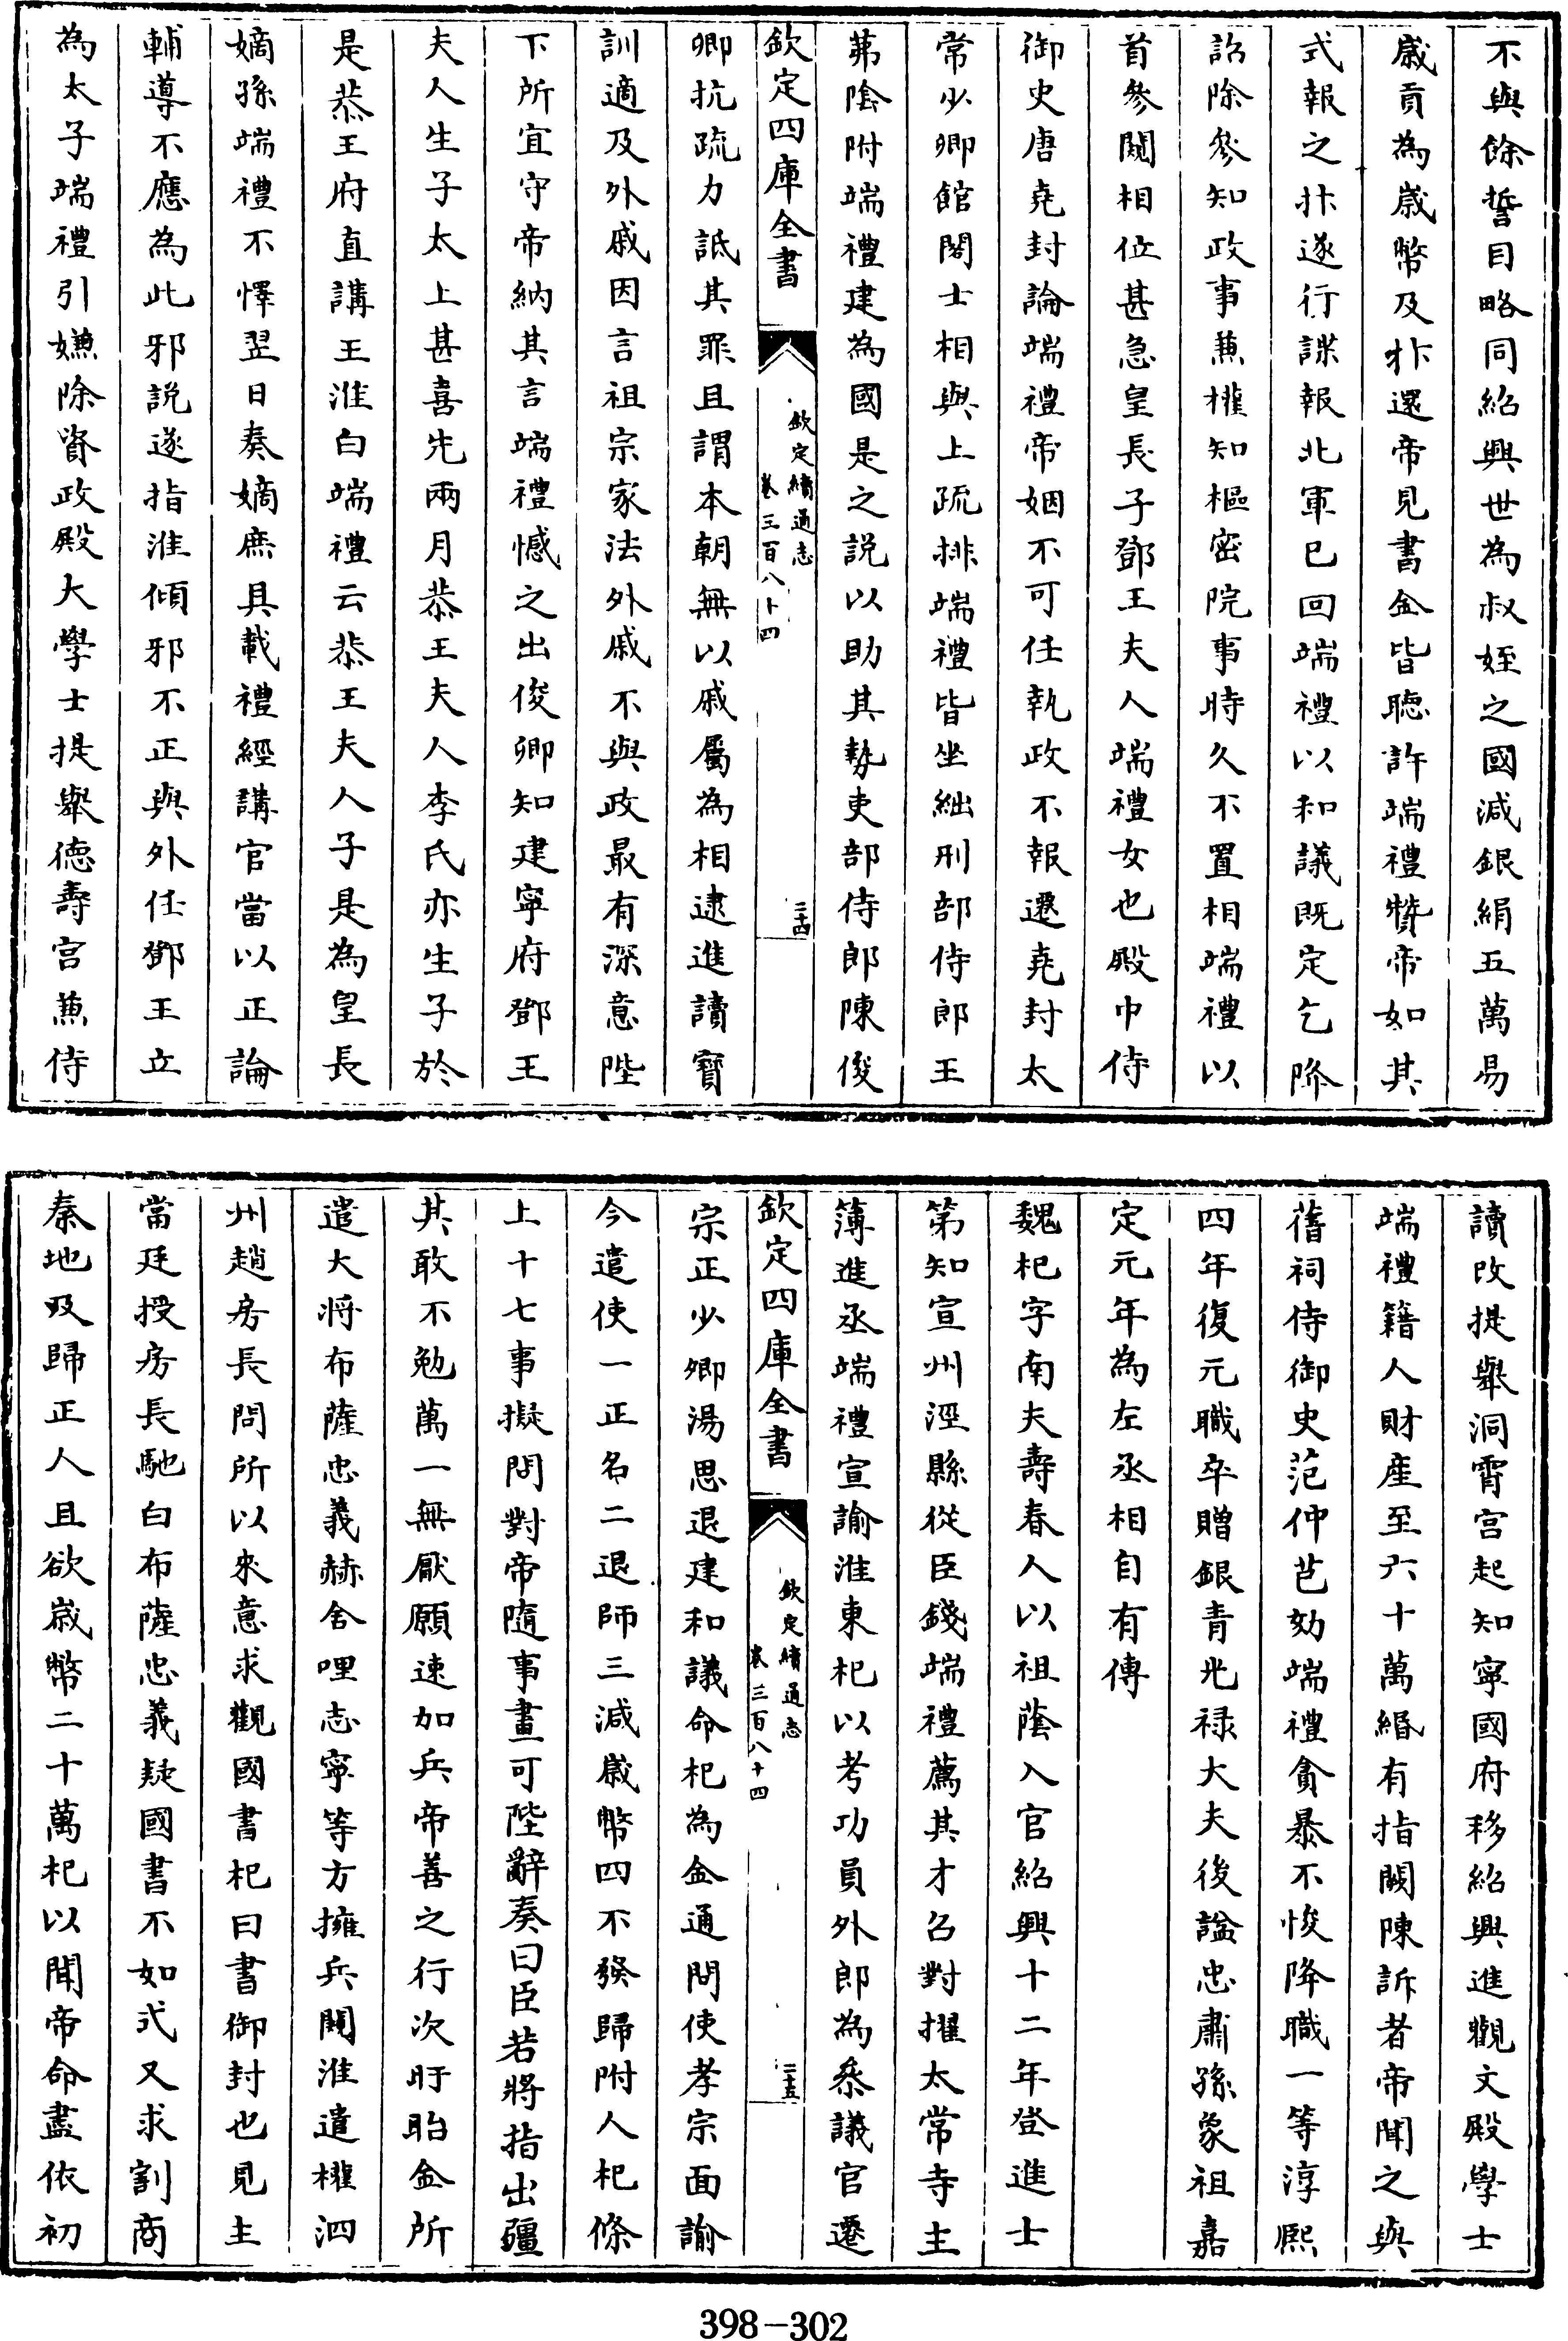 不與餘誓目略同紹興世為叔姪之國減銀絹五萬易
嵗貢為嵗幣及抃還帝見書金皆聽許端禮贊帝如其
式報之抃遂行諜報北軍已回端禮以和議既定乞降
詔除參知政事兼權知樞密院事時久不置相端禮以
首參闚相位甚急皇長子鄧王夫人端禮女也殿中侍
御史唐堯封論端禮帝姻不可任執政不報遷堯封太
常少卿館閣士相與上疏排端禮皆坐絀刑部侍郎王
茀陰附端禮建為國是之説以助其勢吏部侍郎陳俊
欽定四庫全書
欽定續通志
卷三百八十四
二十四
卿抗疏力詆其罪且謂本朝無以戚屬為相逮進讀寶
訓適及外戚因言祖宗家法外戚不與政最有深意陛
下所宜守帝納其言端禮憾之出俊卿知建寧府鄧王
夫人生子太上甚喜先兩月恭王夫人李氏亦生子於
是恭王府直講王淮白端禮云恭王夫人子是為皇長
嫡孫端禮不懌翌日奏嫡庶具載禮經講官當以正論
輔導不應為此邪説遂指淮傾邪不正與外任鄧王立
為太子端禮引嫌除資政殿大學士提舉德壽宮兼侍
讀改提舉洞霄宮起知寧國府移紹興進觀文殿學士
端禮籍人財産至六十萬緡有指闕陳訴者帝聞之與
舊祠侍御史范仲芑劾端禮貪暴不悛降職一等淳熙
四年復元職卒贈銀青光禄大夫後諡忠肅孫象祖嘉
定元年為左丞相自有傳
魏杞字南夫壽春人以祖蔭入官紹興十二年登進士
第知宣州涇縣從臣錢端禮薦其才召對擢太常寺主
簿進丞端禮宣諭淮東杞以考功員外郎為叅議官遷
欽定四庫全書
欽定續通志
卷三百八十四
二十五
宗正少卿湯思退建和議命杞為金通問使孝宗面諭
今遣使一正名二退師三減嵗幣四不發歸附人杞條
上十七事擬問對帝隨事畫可陛辭奏曰臣若將指出疆
其敢不勉萬一無厭願速加兵帝善之行次盱眙金所
遣大將布薩忠義赫舍哩志寧等方擁兵闚淮遣權泗
州趙房長問所以來意求觀國書杞曰書御封也見主
當廷授房長馳白布薩忠義疑國書不如式又求割商
秦地及歸正人且欲嵗幣二十萬杞以聞帝命盡依初
398-302